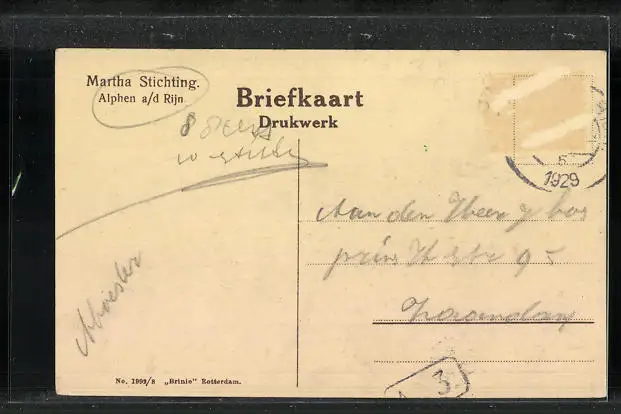 Martha Stichting.
Alphen a/d Rijn
Briefkaart
Drukwerk
5
1929
Aan den Heer J bos
prins H str 95
Zaandam
No. 1993/8 „Brinio" Rotterdam.
3